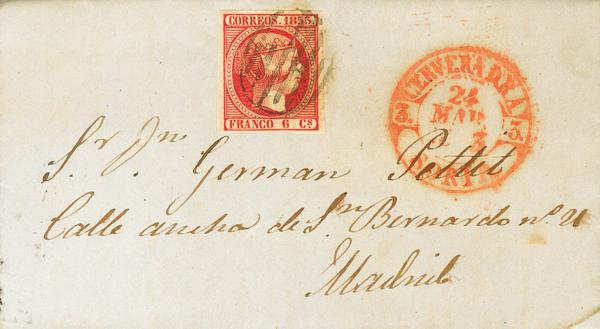 CORREOS. 1853.
FRANCO 6 Cs
CERVERA DE A
3. 3.
24
MAR
SORIA
Sr. Dn. German Pettit
Calle ancha de Sn Bernardo no. 21
Madrid